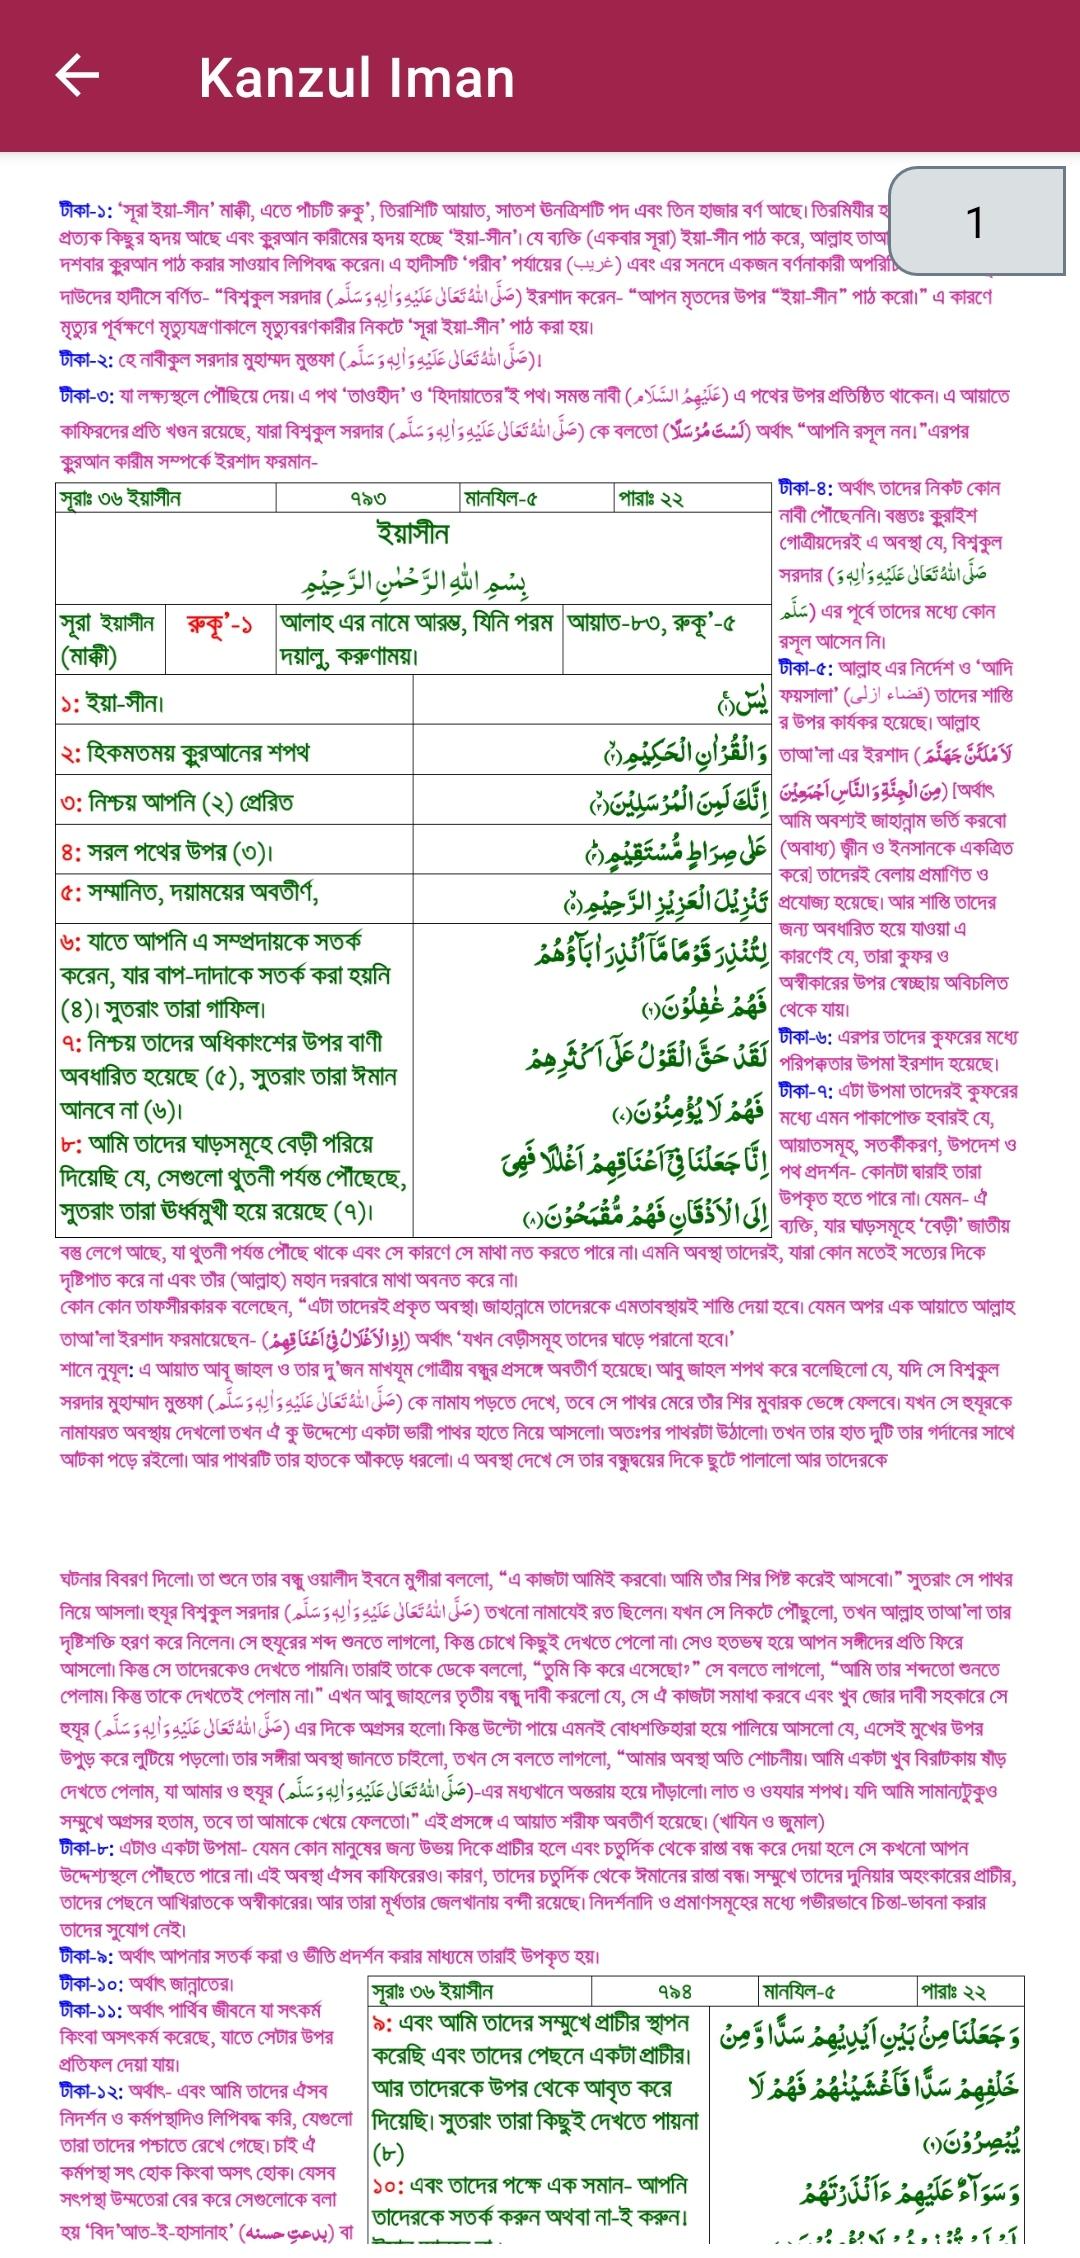 Kanzul Iman
1
টীকা-১: ‘সূরা ইয়া-সীন’ মাক্কী, এতে পাঁচটি রুকু’, তিরাশিটি আয়াত, সাতশ ঊনত্রিশটি পদ এবং তিন হাজার বর্ণ আছে। তিরমিযীর
প্রত্যক কিছুর হৃদয় আছে এবং ক্বুরআন কারীমের হৃদয় হচ্ছে ‘ইয়া-সীন’। যে ব্যক্তি (একবার সূরা) ইয়া-সীন পাঠ করে, আল্লাহ
দশবার ক্বুরআন পাঠ করার সাওয়াব লিপিবদ্ধ করেন। এ হাদীসটি ‘গরীব’ পর্যায়ের (غریب) এবং এর সনদে একজন বর্ণনাকারী
দাউদের হাদীসে বর্ণিত- “বিশ্বকুল সরদার (صَلَّى اللهُ تَعَالٰى عَلَيْهِ وَاٰلِهٖ وَسَلَّم) ইরশাদ করেন- “আপন মৃতদের উপর “ইয়া-সীন” পাঠ করো।” এ কারণে
মৃত্যুর পূর্বক্ষণে মৃত্যুযন্ত্রণাকালে মৃত্যুবরণকারীর নিকটে ‘সূরা ইয়া-সীন’ পাঠ করা হয়।
টীকা-২: হে নাবীকুল সরদার মুহাম্মদ মুস্তফা (صَلَّى اللهُ تَعَالٰى عَلَيْهِ وَاٰلِهٖ وَسَلَّم)।
টীকা-৩: যা লক্ষ্যস্থলে পৌঁছিয়ে দেয়। এ পথ ‘তাওহীদ’ ও ‘হিদায়াতের’ই পথ। সমস্ত নাবী (عَلَيْهِمُ السَّلَام) এ পথের উপর প্রতিষ্ঠিত থাকেন। এ আয়াতে
কাফিরদের প্রতি খণ্ডন রয়েছে, যারা বিশ্বকুল সরদার (صَلَّى اللهُ تَعَالٰى عَلَيْهِ وَاٰلِهٖ وَسَلَّم) কে বলতো (لَسْتَ مُرْسَلًا) অর্থাৎ “আপনি রসূল নন।”এরপর
ক্বুরআন কারীম সম্পর্কে ইরশাদ ফরমান-
সূরাঃ ৩৬ ইয়াসীন ৭৯৩ মানযিল-৫ পারাঃ ২২
ইয়াসীন
بِسْمِ اللهِ الرَّحْمٰنِ الرَّحِيْمِ
সূরা ইয়াসীন (মাক্কী) রুকূ’-১ আলাহ এর নামে আরম্ভ, যিনি পরম দয়ালু, করুণাময়। আয়াত-৮৩, রুকূ’-৫
১: ইয়া-সীন।
يٰسٓ ﴿۱﴾
২: হিকমতময় ক্বুরআনের শপথ
وَالْقُرْاٰنِ الْحَكِيْمِ ﴿۲﴾
৩: নিশ্চয় আপনি (২) প্রেরিত
اِنَّكَ لَمِنَ الْمُرْسَلِيْنَ ﴿۳﴾
৪: সরল পথের উপর (৩)।
عَلٰى صِرَاطٍ مُّسْتَقِيْمٍ ﴿۴﴾
৫: সম্মানিত, দয়াময়ের অবতীর্ণ,
تَنْزِيْلَ الْعَزِيْزِ الرَّحِيْمِ ﴿۵﴾
৬: যাতে আপনি এ সম্প্রদায়কে সতর্ক
করেন, যার বাপ-দাদাকে সতর্ক করা হয়নি
(৪)। সুতরাং তারা গাফিল।
৭: নিশ্চয় তাদের অধিকাংশের উপর বাণী
অবধারিত হয়েছে (৫), সুতরাং তারা ঈমান
আনবে না (৬)।
৮: আমি তাদের ঘাড়সমূহে বেড়ী পরিয়ে
দিয়েছি যে, সেগুলো থুতনী পর্যন্ত পৌঁছেছে,
সুতরাং তারা ঊর্ধ্বমুখী হয়ে রয়েছে (৭)।
لِتُنْذِرَ قَوْمًا مَّاۤ اُنْذِرَ اٰبَآؤُهُمْ
فَهُمْ غٰفِلُوْنَ ﴿۶﴾
لَقَدْ حَقَّ الْقَوْلُ عَلٰۤى اَكْثَرِهِمْ
فَهُمْ لَا يُؤْمِنُوْنَ ﴿۷﴾
اِنَّا جَعَلْنَا فِيْۤ اَعْنَاقِهِمْ اَغْلٰلًا فَهِيَ
اِلَى الْاَذْقَانِ فَهُمْ مُّقْمَحُوْنَ ﴿۸﴾
টীকা-৪: অর্থাৎ তাদের নিকট কোন
নাবী পৌঁছেননি। বস্তুতঃ ক্বুরাইশ
গোত্রীয়দেরই এ অবস্থা যে, বিশ্বকুল
সরদার (صَلَّى اللهُ تَعَالٰى عَلَيْهِ وَاٰلِهٖ وَ
سَلَّم) এর পূর্বে তাদের মধ্যে কোন
রসূল আসেন নি।
টীকা-৫: আল্লাহ এর নির্দেশ ও ‘আদি
ফয়সালা’ (قضاء ازلی) তাদের শাস্তি
র উপর কার্যকর হয়েছে। আল্লাহ
তাআ’লা এর ইরশাদ (لَاَمْلَـَٔنَّ جَهَنَّمَ
مِنَ الْجِنَّةِ وَالنَّاسِ اَجْمَعِيْنَ) [অর্থাৎ
আমি অবশ্যই জাহান্নাম ভর্তি করবো
(অবাধ্য) জ্বীন ও ইনসানকে একত্রিত
করে] তাদেরই বেলায় প্রমাণিত ও
প্রযোজ্য হয়েছে। আর শাস্তি তাদের
জন্য অবধারিত হয়ে যাওয়া এ
কারণেই যে, তারা কুফর ও
অস্বীকারের উপর স্বেচ্ছায় অবিচলিত
থেকে যায়।
টীকা-৬: এরপর তাদের কুফরের মধ্যে
পরিপক্কতার উপমা ইরশাদ হয়েছে।
টীকা-৭: এটা উপমা তাদেরই কুফরের
মধ্যে এমন পাকাপোক্ত হবারই যে,
আয়াতসমূহ, সতর্কীকরণ, উপদেশ ও
পথ প্রদর্শন- কোনটা দ্বারাই তারা
উপকৃত হতে পারে না। যেমন- ঐ
ব্যক্তি, যার ঘাড়সমূহে ‘বেড়ী’ জাতীয়
বস্তু লেগে আছে, যা থুতনী পর্যন্ত পৌঁছে থাকে এবং সে কারণে সে মাথা নত করতে পারে না। এমনি অবস্থা তাদেরই, যারা কোন মতেই সত্যের দিকে
দৃষ্টিপাত করে না এবং তাঁর (আল্লাহ) মহান দরবারে মাথা অবনত করে না।
কোন কোন তাফসীরকারক বলেছেন, “এটা তাদেরই প্রকৃত অবস্থা। জাহান্নামে তাদেরকে এমতাবস্থায়ই শাস্তি দেয়া হবে। যেমন অপর এক আয়াতে আল্লাহ
তাআ’লা ইরশাদ ফরমায়েছেন- (اِذِ الْاَغْلَالُ فِيْۤ اَعْنَاقِهِمْ) অর্থাৎ ‘যখন বেড়ীসমূহ তাদের ঘাড়ে পরানো হবে।’
শানে নুযূল: এ আয়াত আবূ জাহল ও তার দু’জন মাখযূম গোত্রীয় বন্ধুর প্রসঙ্গে অবতীর্ণ হয়েছে। আবু জাহল শপথ করে বলেছিলো যে, যদি সে বিশ্বকুল
সরদার মুহাম্মাদ মুস্তফা (صَلَّى اللهُ تَعَالٰى عَلَيْهِ وَاٰلِهٖ وَسَلَّم) কে নামায পড়তে দেখে, তবে সে পাথর মেরে তাঁর শির মুবারক ভেঙ্গে ফেলবে। যখন সে হুযূরকে
নামাযরত অবস্থায় দেখলো তখন ঐ কু উদ্দেশ্যে একটা ভারী পাথর হাতে নিয়ে আসলো। অতঃপর পাথরটা উঠালো। তখন তার হাত দুটি তার গর্দানের সাথে
আটকা পড়ে রইলো। আর পাথরটি তার হাতকে আঁকড়ে ধরলো। এ অবস্থা দেখে সে তার বন্ধুদ্বয়ের দিকে ছুটে পালালো আর তাদেরকে
ঘটনার বিবরণ দিলো। তা শুনে তার বন্ধু ওয়ালীদ ইবনে মুগীরা বললো, “এ কাজটা আমিই করবো। আমি তাঁর শির পিষ্ট করেই আসবো।” সুতরাং সে পাথর
নিয়ে আসলা। হুযূর বিশ্বকুল সরদার (صَلَّى اللهُ تَعَالٰى عَلَيْهِ وَاٰلِهٖ وَسَلَّم) তখনো নামাযেই রত ছিলেন। যখন সে নিকটে পৌঁছুলো, তখন আল্লাহ তাআ’লা তার
দৃষ্টিশক্তি হরণ করে নিলেন। সে হুযূরের শব্দ শুনতে লাগলো, কিন্তু চোখে কিছুই দেখতে পেলো না। সেও হতভম্ব হয়ে আপন সঙ্গীদের প্রতি ফিরে
আসলো। কিন্তু সে তাদেরকেও দেখতে পায়নি। তারাই তাকে ডেকে বললো, “তুমি কি করে এসেছো?” সে বলতে লাগলো, “আমি তার শব্দতো শুনতে
পেলাম। কিন্তু তাকে দেখতেই পেলাম না।” এখন আবু জাহলের তৃতীয় বন্ধু দাবী করলো যে, সে ঐ কাজটা সমাধা করবে এবং খুব জোর দাবী সহকারে সে
হুযূর (صَلَّى اللهُ تَعَالٰى عَلَيْهِ وَاٰلِهٖ وَسَلَّم) এর দিকে অগ্রসর হলো। কিন্তু উল্টো পায়ে এমনই বোধশক্তিহারা হয়ে পালিয়ে আসলো যে, এসেই মুখের উপর
উপুড় করে লুটিয়ে পড়লো। তার সঙ্গীরা অবস্থা জানতে চাইলো, তখন সে বলতে লাগলো, “আমার অবস্থা অতি শোচনীয়। আমি একটা খুব বিরাটকায় ষাঁড়
দেখতে পেলাম, যা আমার ও হুযূর (صَلَّى اللهُ تَعَالٰى عَلَيْهِ وَاٰلِهٖ وَسَلَّم)-এর মধ্যখানে অন্তরায় হয়ে দাঁড়ালো। লাত ও ওযযার শপথ। যদি আমি সামান্যটুকুও
সম্মুখে অগ্রসর হতাম, তবে তা আমাকে খেয়ে ফেলতো।” এই প্রসঙ্গে এ আয়াত শরীফ অবতীর্ণ হয়েছে। (খাযিন ও জুমাল)
টীকা-৮: এটাও একটা উপমা- যেমন কোন মানুষের জন্য উভয় দিকে প্রাচীর হলে এবং চতুর্দিক থেকে রাস্তা বন্ধ করে দেয়া হলে সে কখনো আপন
উদ্দেশ্যস্থলে পৌঁছতে পারে না। এই অবস্থা ঐসব কাফিরেরও। কারণ, তাদের চতুর্দিক থেকে ঈমানের রাস্তা বন্ধ। সম্মুখে তাদের দুনিয়ার অহংকারের প্রাচীর,
তাদের পেছনে আখিরাতকে অস্বীকারের। আর তারা মূর্খতার জেলখানায় বন্দী রয়েছে। নিদর্শনাদি ও প্রমাণসমূহের মধ্যে গভীরভাবে চিন্তা-ভাবনা করার
তাদের সুযোগ নেই।
টীকা-৯: অর্থাৎ আপনার সতর্ক করা ও ভীতি প্রদর্শন করার মাধ্যমে তারাই উপকৃত হয়।
টীকা-১০: অর্থাৎ জান্নাতের।
টীকা-১১: অর্থাৎ পার্থিব জীবনে যা সৎকর্ম
কিংবা অসৎকর্ম করেছে, যাতে সেটার উপর
প্রতিফল দেয়া যায়।
টীকা-১২: অর্থাৎ- এবং আমি তাদের ঐসব
নিদর্শন ও কর্মপন্থাদিও লিপিবদ্ধ করি, যেগুলো
তারা তাদের পশ্চাতে রেখে গেছে। চাই ঐ
কর্মপন্থা সৎ হোক কিংবা অসৎ হোক। যেসব
সৎপন্থা উম্মতেরা বের করে সেগুলোকে বলা
হয় ‘বিদ’আত-ই-হাসানাহ’ (بدعتِ حسنه) বা
সূরাঃ ৩৬ ইয়াসীন ৭৯৪ মানযিল-৫ পারাঃ ২২
৯: এবং আমি তাদের সম্মুখে প্রাচীর স্থাপন
করেছি এবং তাদের পেছনে একটা প্রাচীর।
আর তাদেরকে উপর থেকে আবৃত করে
দিয়েছি। সুতরাং তারা কিছুই দেখতে পায়না
(৮)
১০: এবং তাদের পক্ষে এক সমান- আপনি
তাদেরকে সতর্ক করুন অথবা না-ই করুন।
وَ جَعَلْنَا مِنْۢ بَيْنِ اَيْدِيْهِمْ سَدًّا وَّ مِنْ
خَلْفِهِمْ سَدًّا فَاَغْشَيْنٰهُمْ فَهُمْ لَا
يُبْصِرُوْنَ ﴿۹﴾
وَ سَوَآءٌ عَلَيْهِمْ ءَاَنْذَرْتَهُمْ